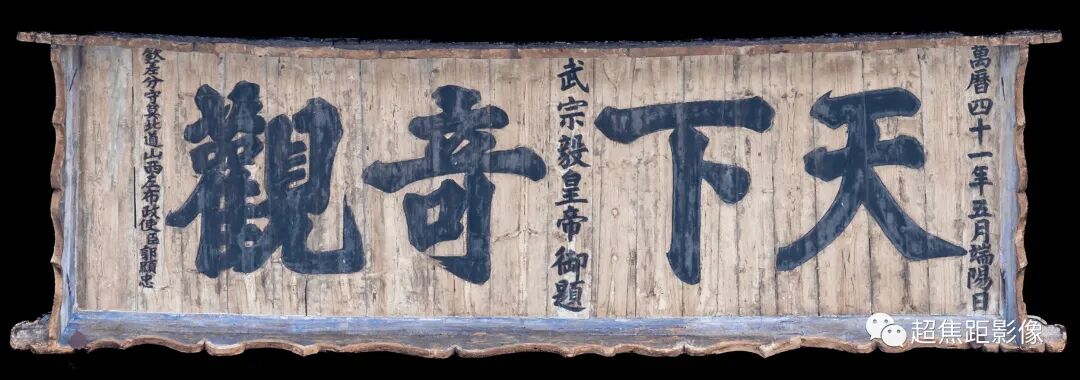 萬曆四十一年五月端陽日
天下奇觀
武宗毅皇帝御題
欽差分守冀北道山西左布政使臣郭顯忠
超焦距影像